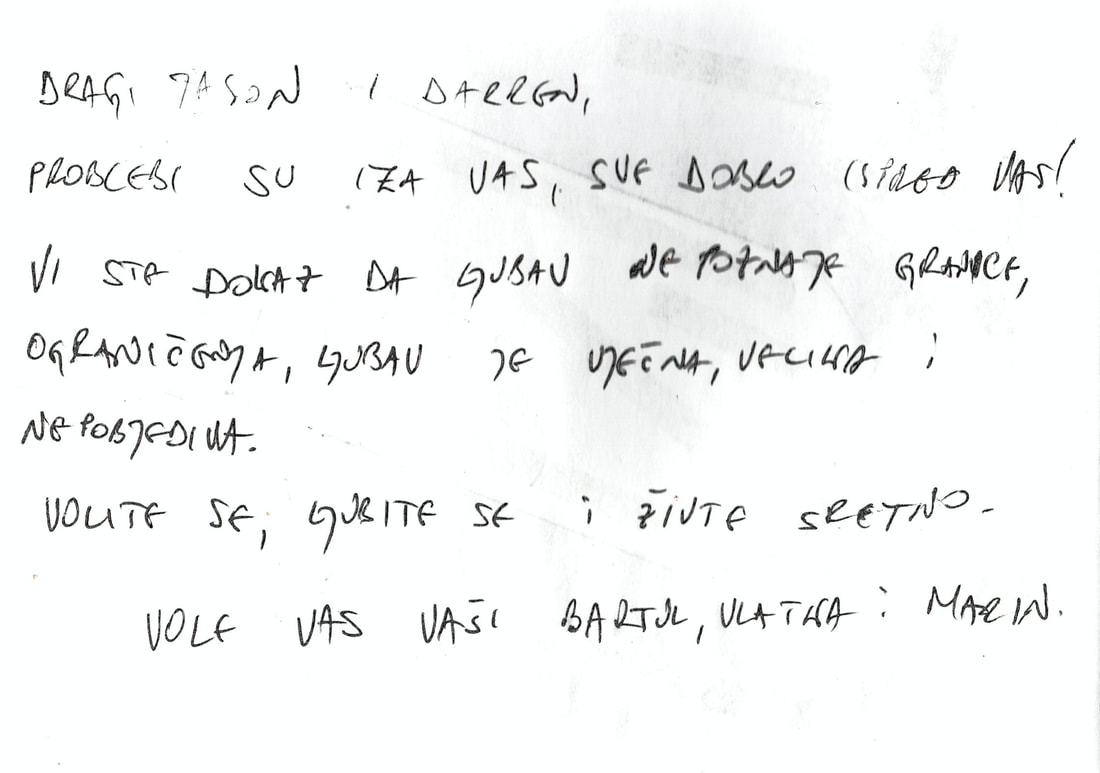 DRAGI JASON I DARREN,
PROBLEMI SU IZA VAS, SVE DOBRO ISPRED VAS!
VI STE DOKAZ DA LJUBAV NE POZNAJE GRANICE,
OGRANIČENJA, LJUBAV JE VJEČNA, VELIKA i
NEPOBJEDIVA.
VOLITE SE, LJUBITE SE i ŽIVITE SRETNO.
VOLE VAS VAŠI BARTUL, VLATKA i MARIN.